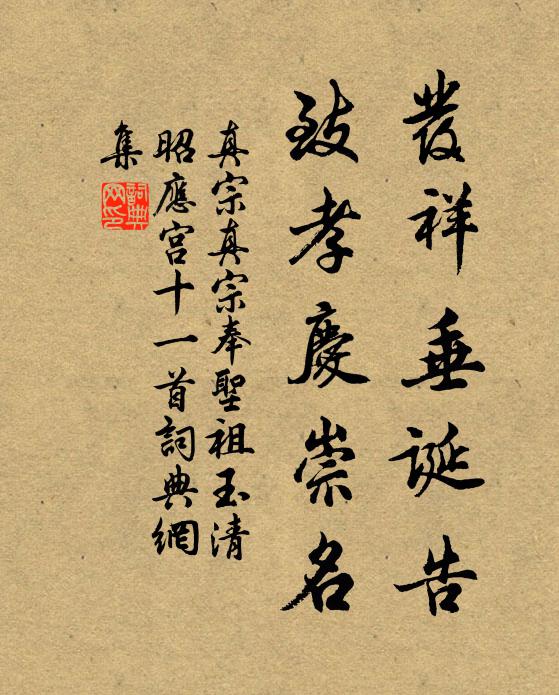 發祥垂誕告
致孝慶崇名
真宗真宗奉聖祖玉清
昭應宮十一首詞典網
集
詞典
网印